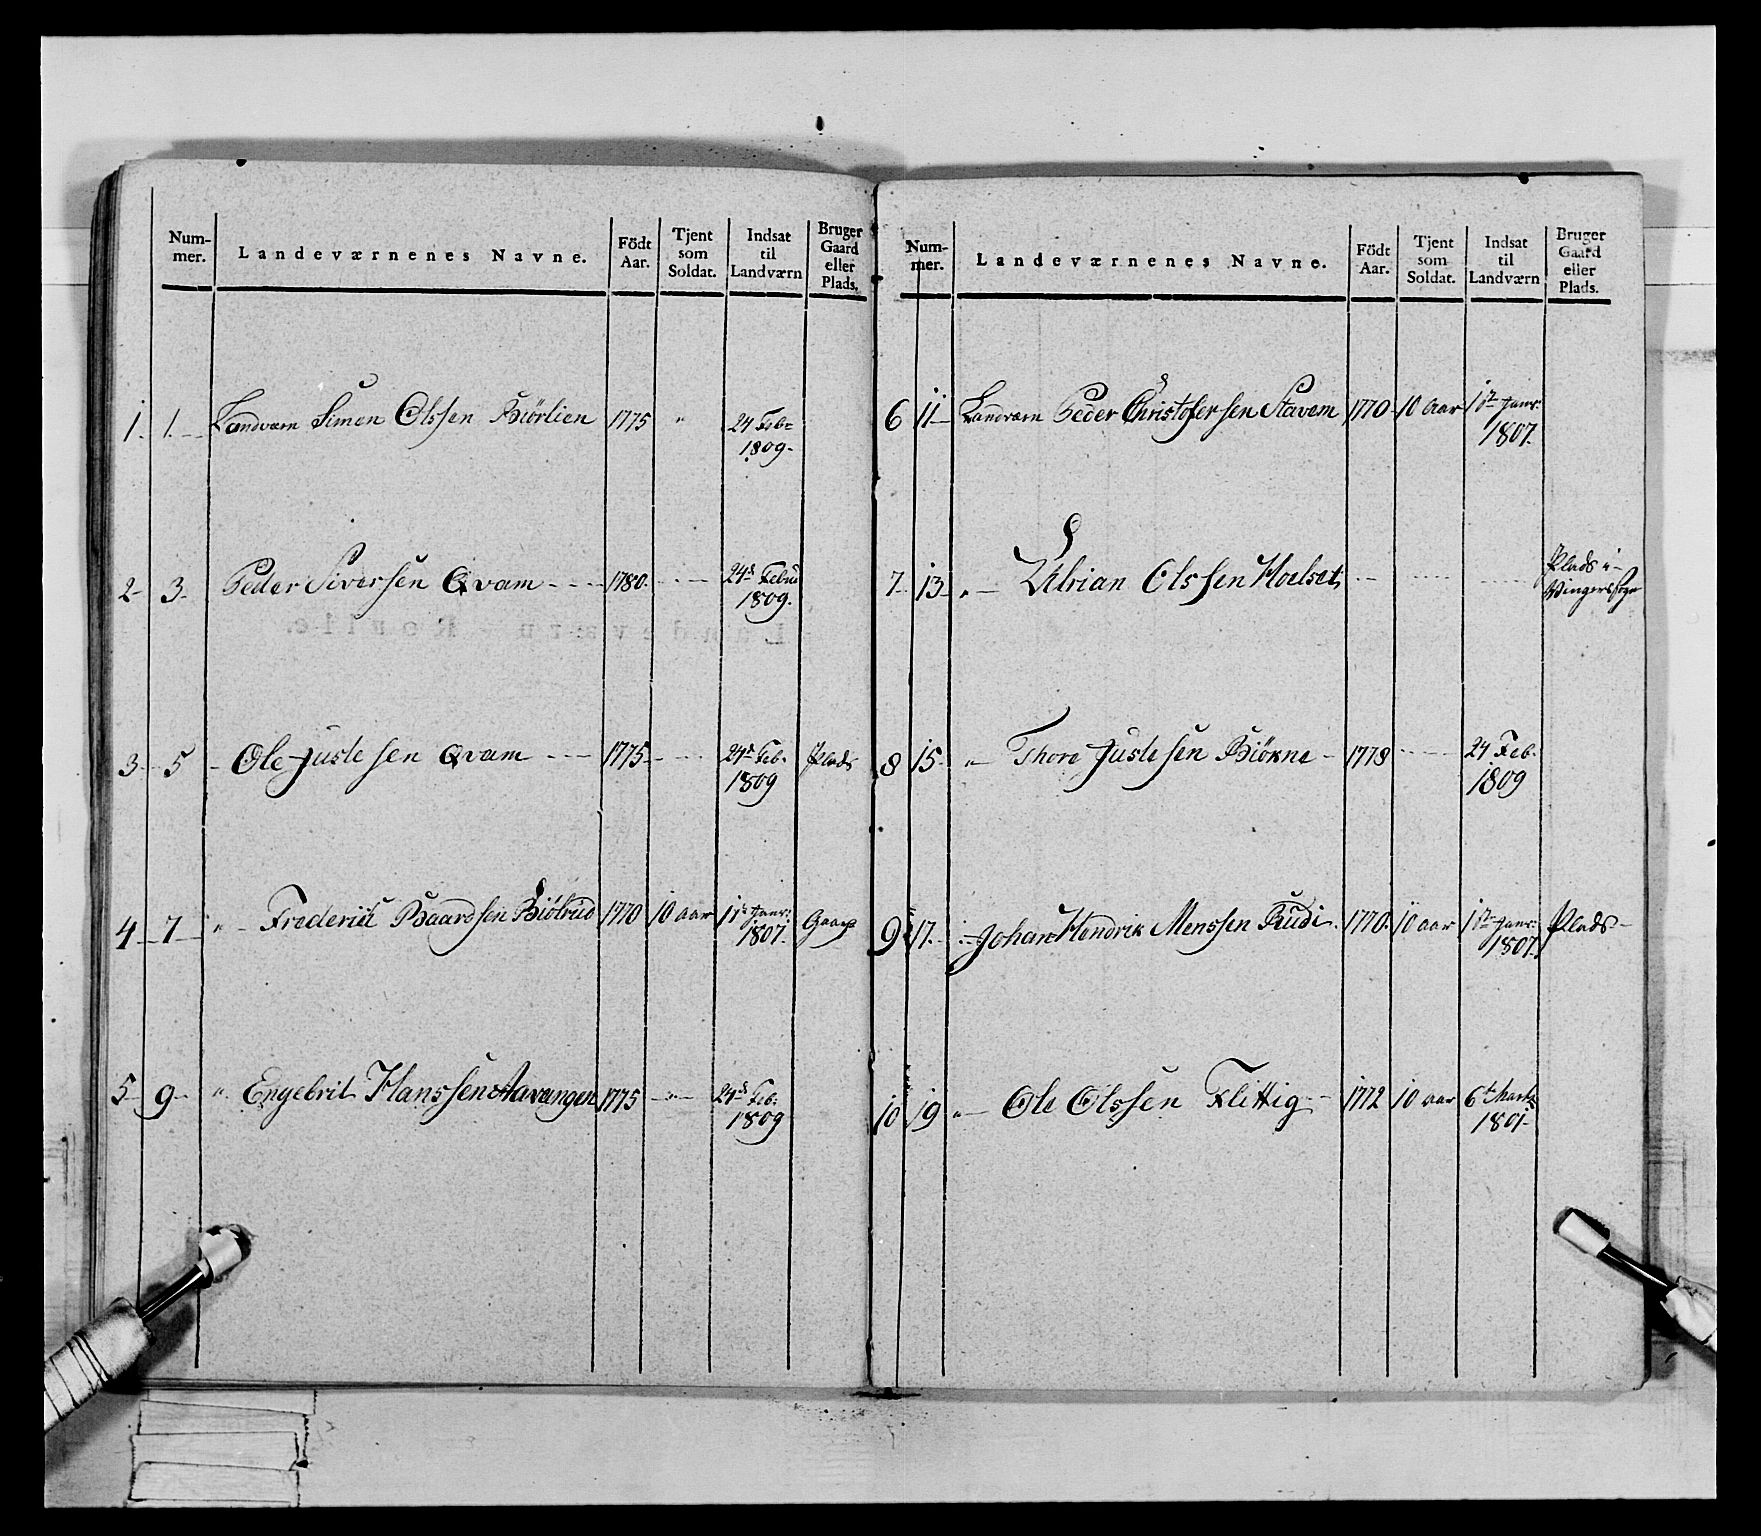 Num-
mer.
Landeværnenes Navne.
Födt
Aar.
Tjent
som
Soldat.
Indsat
til
Landværn
Bruger
Gaard
eller
Plads.
1. 1. Landværn Simen Olssen Biörlien 1775 " 24 Feb:
1809.
2. 3. Peder Siversen Qvam 1780. 24de Febru
1809.
3. 5 Ole Justesen Qvam 1775 24de Feb. Plads
1809
4 7 " Frederich Baardsen 1770 10 aar 1te Janr: Gaard
1807.
5 9 " Engebrit Hanssen Aavangen 1775 24de Feb:
1809
Num-
mer.
Landeværnenes Navne.
Födt
Aar.
Tjent
som
Soldat.
Indsat
til
Landværn
Bruger
Gaard
eller
Plads.
6 11 Landværn Peder Christofersen Stavem 1770 10 Aar 1ste Janr:
1807.
7. 13 " Olssen Hoelset Plads i
Vinger Sogn
8 15 " Thore Justesen Biörne 1778 24 Feb.
1809
9 17. " Johan Hendrik Monssen Rudi 1770. 10 aar 1ste Janr: Plads
1807.
10 19 " Ole Olssen Klittig 1772 10 aar 6te Marts
1801.